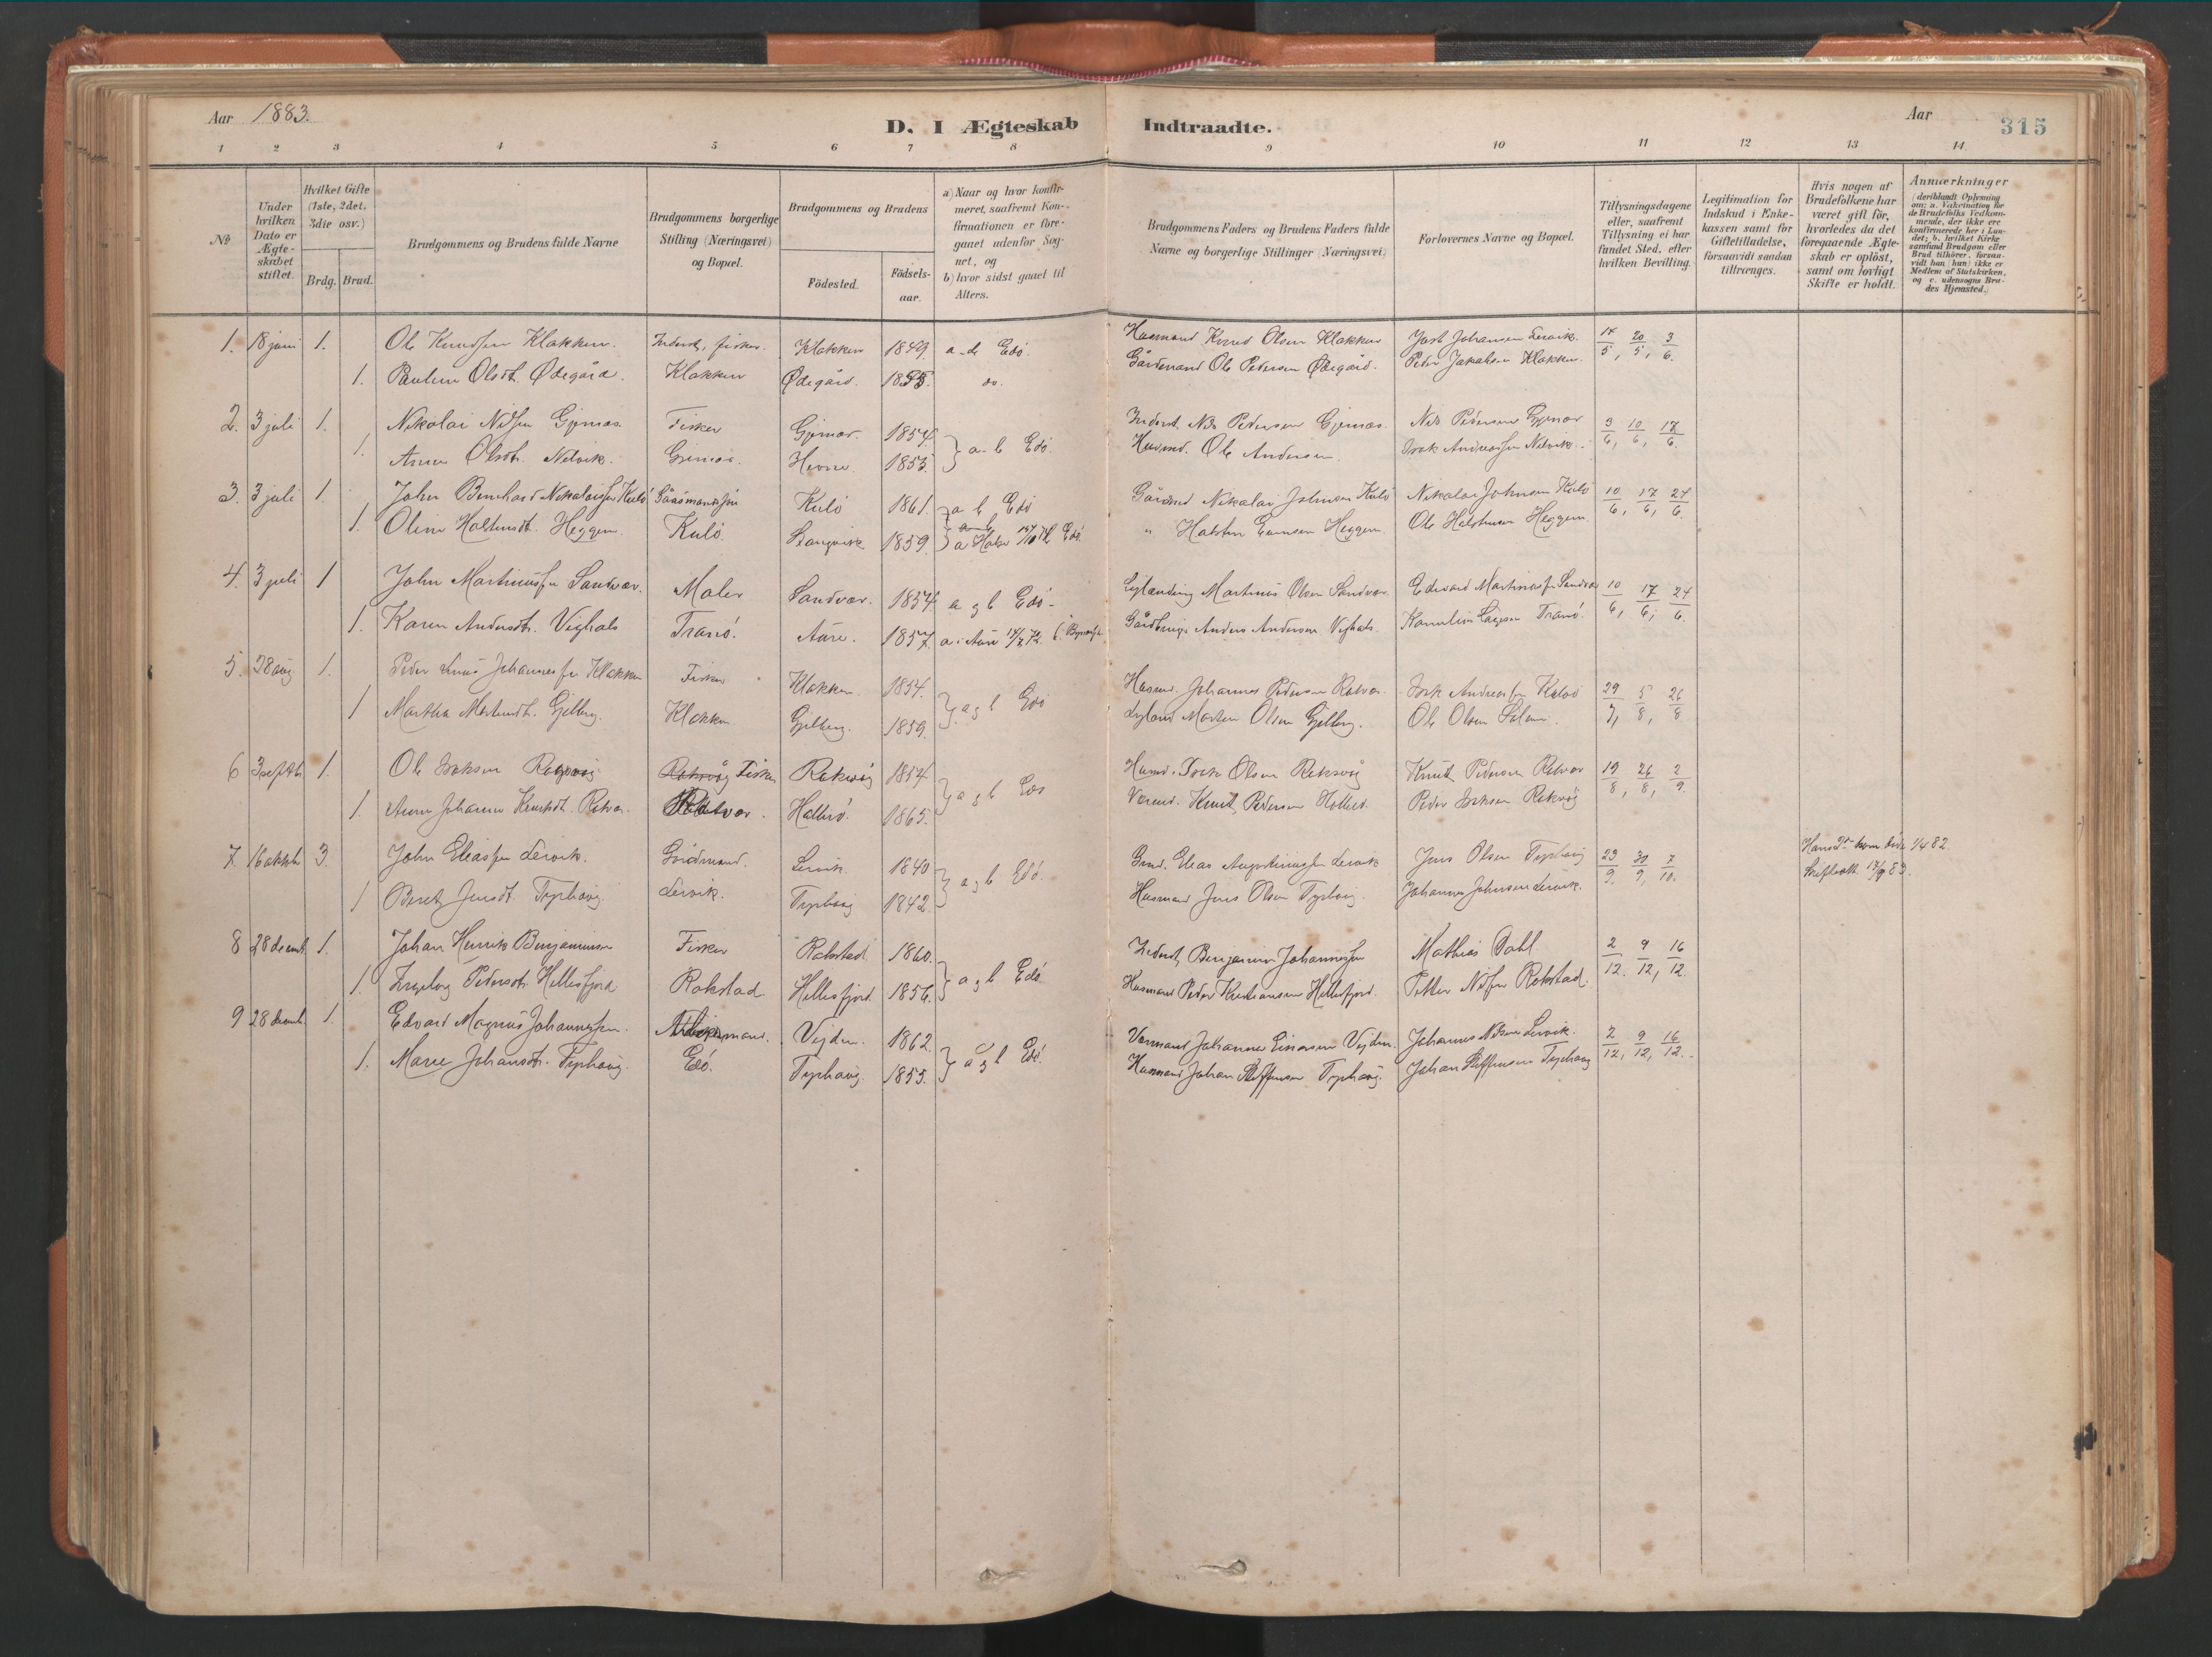 Aar 1883.
D. I Ægteskab Indtraadte.
Aar
315
1 2 3 4 5 6 7 8 9 10 11 12 13 14
No.
Under hvilken Dato er Ægte-skabet stiftet.
Hvilket Gifte (1ste, 2det, 3die osv.)
Brdg. Brud.
Brudgommens og Brudens fulde Navne
Brudgommens borgerlige Stilling (Næringsvei) og Bopæl.
Brudgommens og Brudens
Födested.
Födsels-aar.
a) Naar og hvor konfir-meret, saafremt Kon-firmationen er fore-gaaet udenfor Sog-net, og
b) hvor sidst gaaet til Alters.
Brudgommens Faders og Brudens Faders fulde Navne og borgerlige Stillinger (Næringsvei)
Forlovernes Navne og Bopæl.
Tillysningsdagene eller, saafremt Tillysning ei har fundet Sted, efter hvilken Bevilling.
Legitimation for Indskud i Enke-kassen samt for Giftetilladelse, forsaavidt saadan tiltrænges.
Hvis nogen af Brudefolkene har været gift för, hvorledes da det foregaaende Ægte-skab er oplöst, samt om lovligt Skifte er holdt.
Anmærkninger (deriblandt Oplysning om: a. Vakcination for de Brudefolks Vedkom-mende, der ikke ere konfirmerede her i Lan-det; b. hvilket Kirke-samfund Brudgom eller Brud tilhörer, forsaa-vidt han (hun) ikke er Medlem af Statskirken, og c. udensogns Bru-des Hjemsted.)
1. 18 juni 1. Ole Knudsen Klakken. Inderst, fisker. Klakken 1849 a-b Edö. Husmand Knud Olsen Klakken Johansen Lervik. 17/5, 20/5, 3/6.
1. Pauline Olsdt. Ødegård. Klakken Ødegård. 1855. do. Gårdmand Ole Pedersen Ødegård. Peder Jakobsen Klakken.
2. 3 juli 1. Nikolai Nilsen Gjemæs. Fisker 1854. Inderst Nils Pedersen Gjemæs. Nils Pedersen 3/6, 10/6, 17/6.
1. Anne Olsdt. Nelvik. Hevne. 1853. } a-b Edö. Husmd. Ole Andersen. Isak Andreassen Nelvik.
3. 3 juli 1. John Bernhard Nikolaisen Kulö Gårdmandssön Kulö 1861. } a b Edö Gårdmd Nikolai Johnsen Kulö Nikolai Johnsen Kulö 10/6, 17/6, 24/6.
1. Oline Halstensdt. Heggem. Kulö. Stangvik 1859. } a Halse Edö. " Halsten Heggem. Ole Halstensen Heggem.
4. 3 juli 1 John Martinussen Sandvær. Maler Sandvær. 1854. a g b Edö. Martinus Olsen Sandvær. Edvard Martinussen Sandvær 10/6, 17/6, 24/6.
1. Karen Andersdt. Vighals Tranö. Aure. 1857. a i Aure Gårdbruger Anders Andersen Vighals. Tranö.
5. 28 aug. 1. Peder Johannessen Klakken Fisker Klakken. 1854. Husmd. Johannes Pedersen Isak Andreassen 29/7, 5/8, 26/8
1 Martha Mortensdt. Gjelberg. Klakken Gjelberg. 1859. } a g b Edö Morten Olsen Gjelberg. Ole Olsen
6 3 septb 1. Ole Isaksen Fisker Rekvåg 1854 Husmd. Isak Olsen Knut Pedersen 19/8, 26/8, 2/9.
1. Anne Johanne Knutsdt. 1865. } a g b Edö Knut Pedersen Peder Isaksen
7. 16 oktbr 3. John Eliassen Lervik. Gårdmand. Lervik 1840 Gmd. Elias Lervik Jens Olsen Typhaug 23/9, 30/9, 7/10. Skiftet 17/9 83.
1 Beret Jensdt. Typhaug. Lervik. Typhaug 1842. } a g b Edö. Husmand Jens Olsen Typhaug. Johannes Johnsen Lervik.
8 28 decmb. 1. Johan Henrik Benjaminsen Fisker Rokstad 1860. Inderst, Benjamin Johannessen Mathias Dahl. 2/12. 9/12, 16/12.
1. Ingeborg Pedersdt. Hellesfjord Rokstad. Hellesfjord. 1856. } a g b Edö Husmand Peder Kristiansen Hellesfjord. Petter Nilsen Rokstad.
9 28 decmb. 1. Edvard Magnus Johannessen. Vejden. 1862. Johannes Einersen Vejden. Johannes Nilsen Lervik. 2/12, 9/12, 16/12.
1. Marie Johansdt. Typhaug. Edö. Typhaug. 1855. } a g b Edö. Husmand Johan Steffensen Typhaug. Johan Steffensen Typhaug